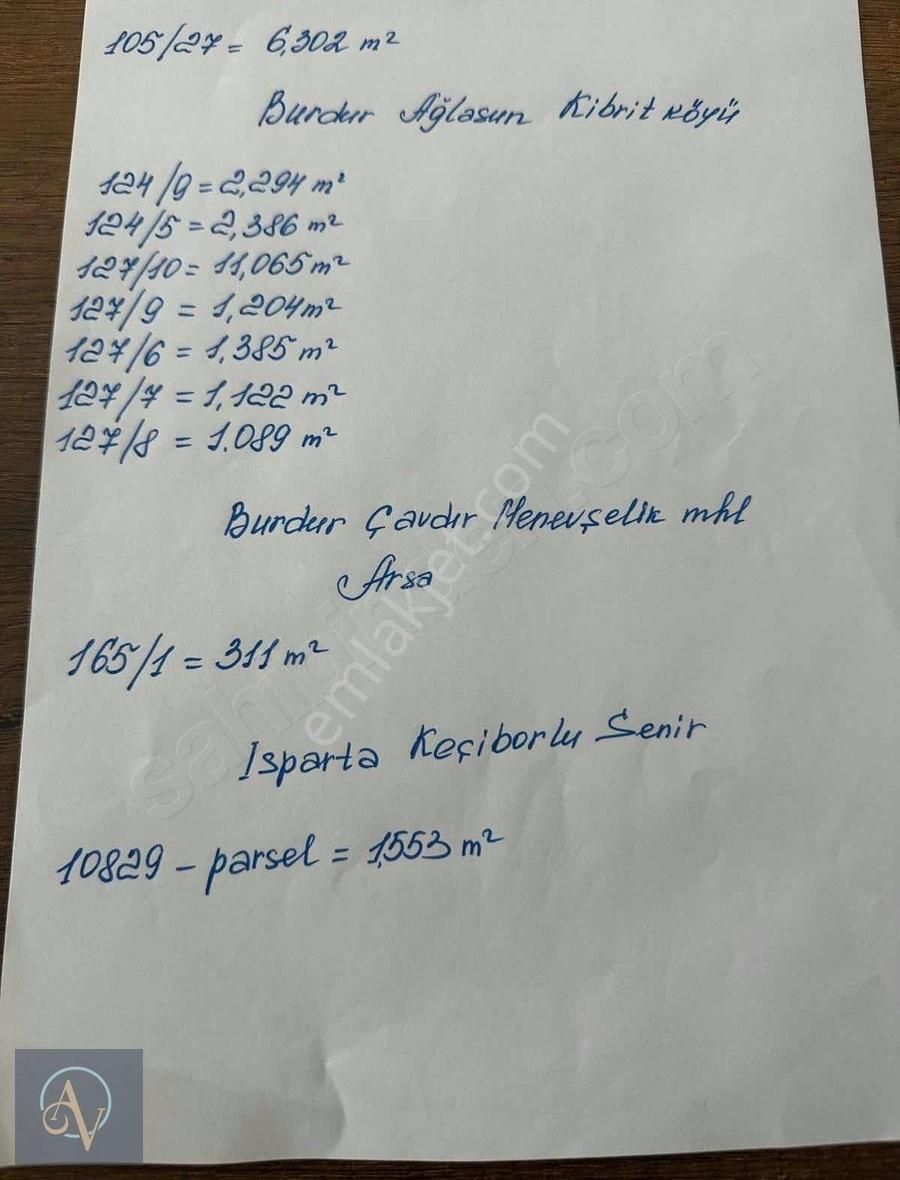 105/27 = 6,302 m²
Burdur Ağlasun Kibrit köyü
124/9 = 2,294 m²
124/5 = 2,386 m²
127/10 = 11,065 m²
127/9 = 1,204 m²
127/6 = 1,385 m²
127/7 = 1,122 m²
127/8 = 1.089 m²
Burdur Çavdır Menevşelik mhl
Arsa
165/1 = 311 m²
Isparta Keçiborlu Senir
10829 - parsel = 1,553 m²
emlakjet.com
AV